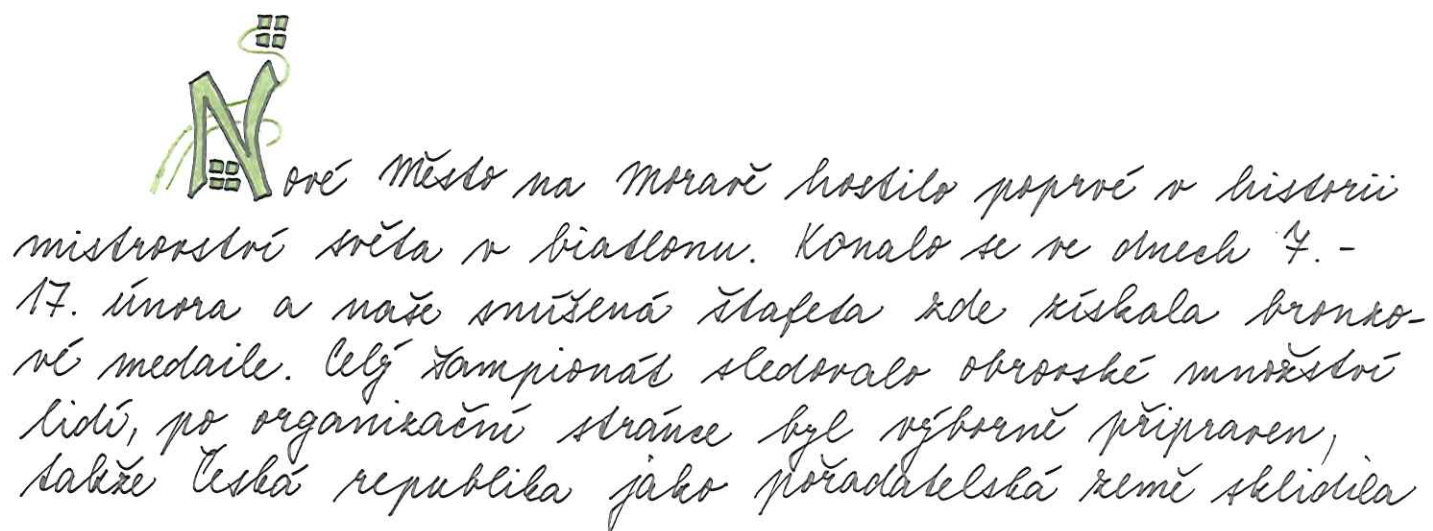 Nové Město na Moravě hostilo poprvé v historii
mistrovství světa v biatlonu. Konalo se ve dnech 7.-
17. února a naše smíšená štafeta zde získala bronzo-
vé medaile. Celý šampionát sledovalo obrovské množství
lidí, po organizační stránce byl výborně připraven,
takže Česká republika jako pořadatelská země sklidila